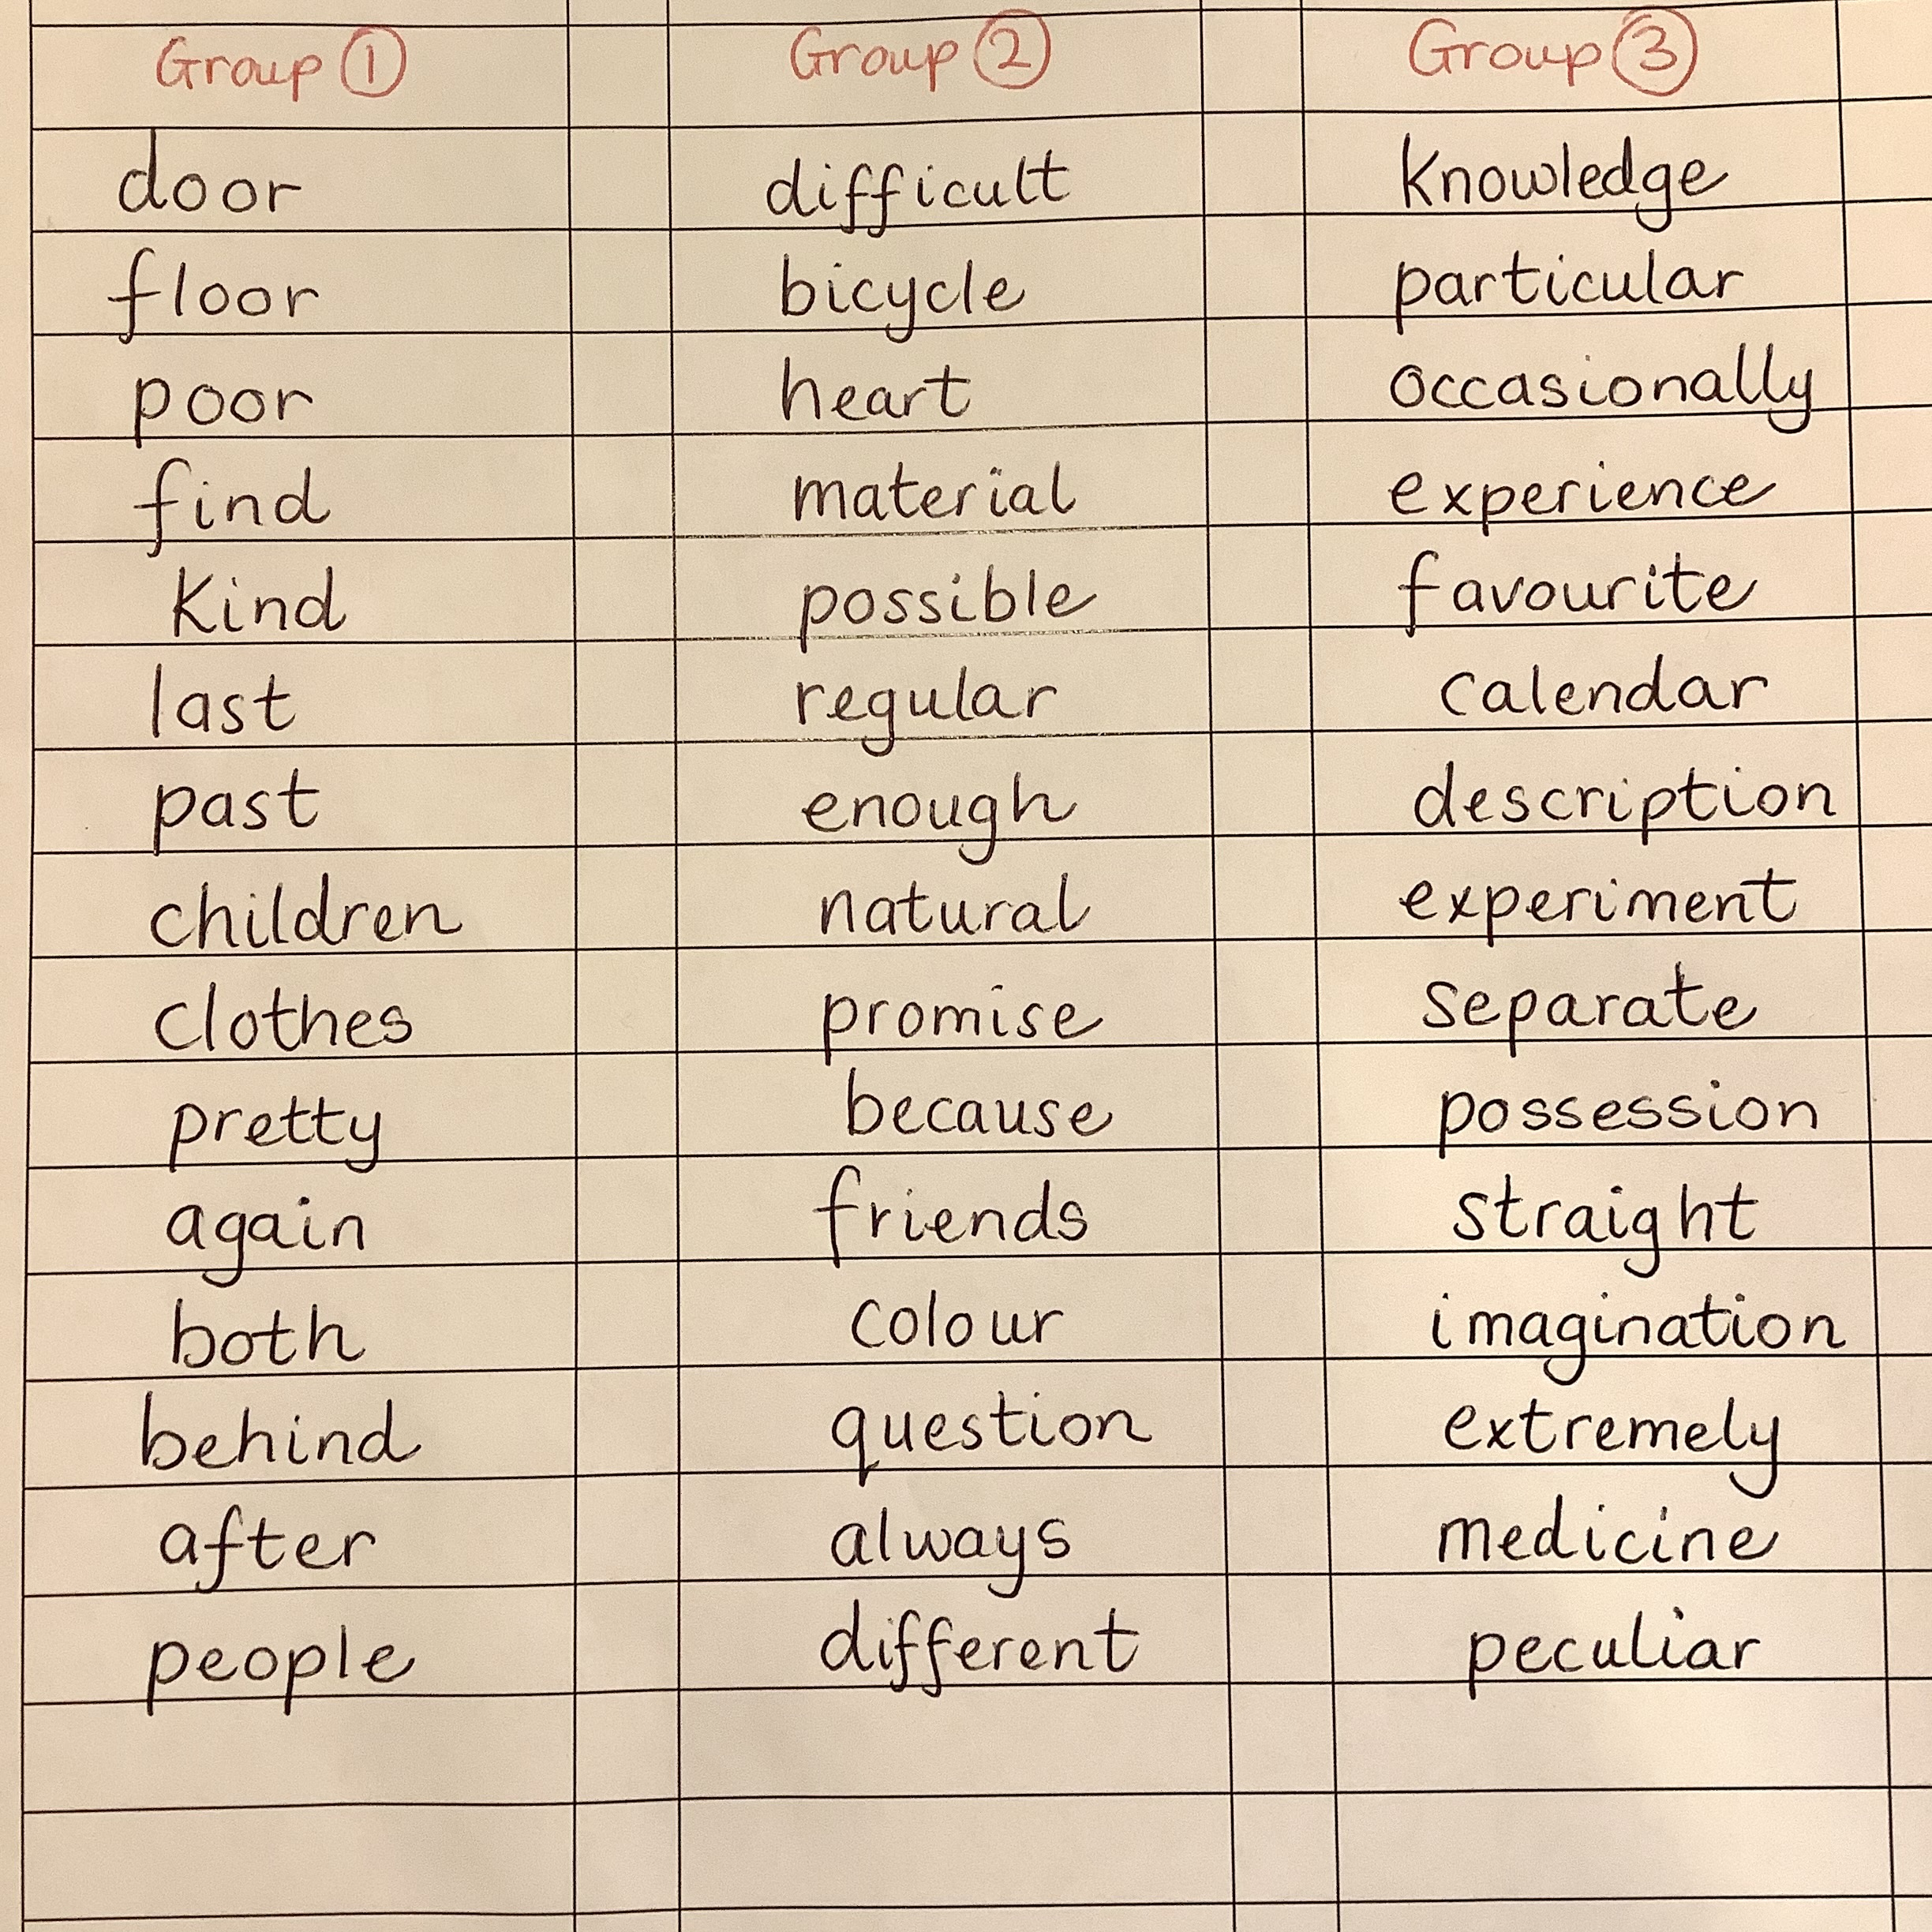 Group 1 Group 2 Group 3
door difficult Knowledge
floor bicycle particular
poor heart occasionally
find material experience
Kind possible favourite
last regular calendar
past enough description
children natural experiment
clothes promise separate
pretty because possession
again friends straight
both colour imagination
behind question extremely
after always medicine
people different peculiar